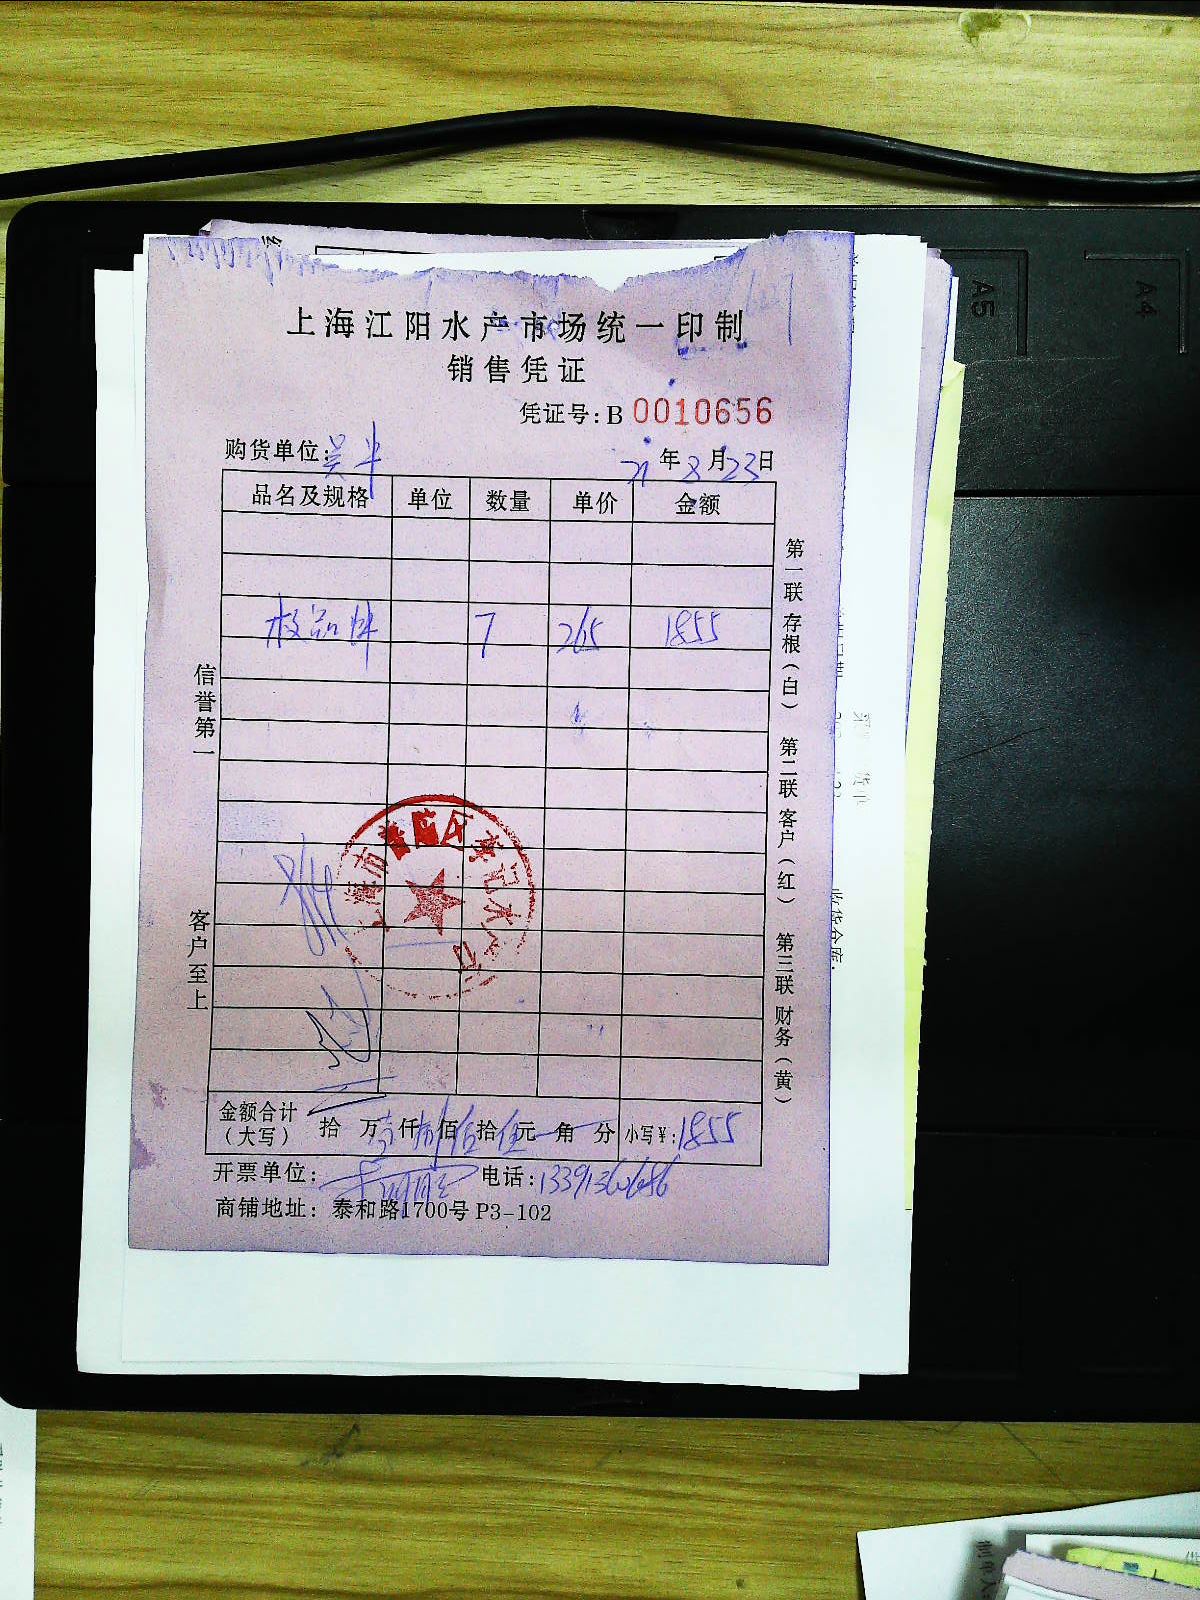 上海江阳水产市场统一印制
销售凭证
凭证号: B 0010656
购货单位: 吴半
21年8月23日
品名及规格 单位 数量 单价 金额
极品蚌 7 265 1855
信誉第一
客户至上
第一联 存根(白) 第二联 客户(红) 第三联 财务(黄)
上海市普陀区 记水产
金额合计(大写) 拾 万 壹仟捌佰 拾伍元 角 分 小写¥: 1855
开票单位: 电话: 13391360686
商铺地址: 泰和路1700号 P3-102
A5
A4